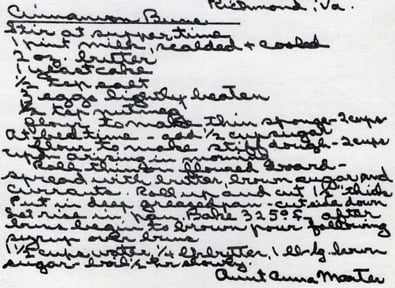 Richmond, Va.
Cinnamon Buns
Stir at suppertime
1 pint milk, scalded + cooled
2 oz. butter
1 yeast cake
1/2 tsp salt
2 eggs lightly beaten
flour to make thin sponge - 2 cups
At bedtime - add 1/2 cup sugar
flour to make stiff dough - 2 cups
early in morning
Roll thin on floured board -
spread with butter, brown sugar and
currants. Roll up and cut 1 1/2" thick
Put in deep greased pan - cut side down
Let rise in pan, Bake 325°F. after
buns begin to brown pour following
syrup over buns
1 1/2 cups water, 1/4 lb butter, 1 lb brown
sugar - boil slowly.
Aunt Anna